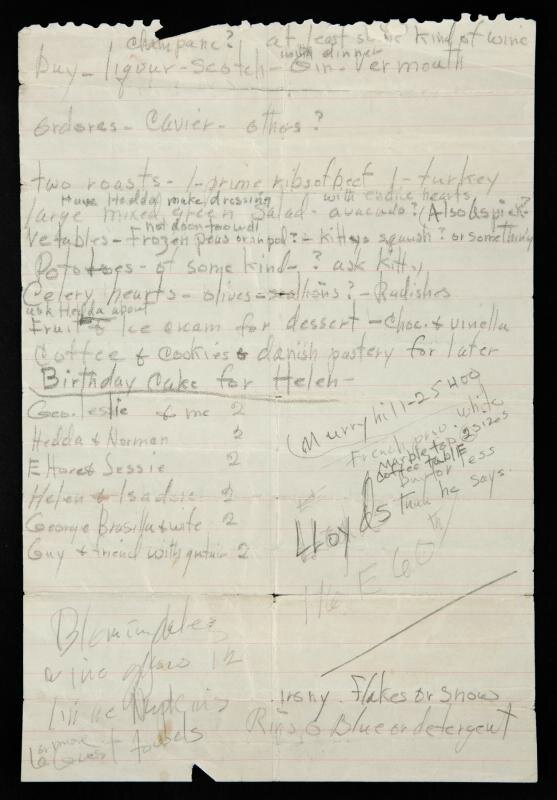 champane? at least some kind of wine
with dinner
Buy - liqour - Scotch - Gin - Vermouth
ordores - Cavier - others?
two roasts - 1 - prime ribs of beef 1 - turkey
Have Hedda make dressing with endie hearts,
large mixed green salad - avacado? / Also aspick?
not doon too well
Vetables - Frozen peas or snpol? - Kittys squash? or something
Potatoes - of some kind - ? ask Kitty
Celery hearts - olives - scallions? - Radishes
ask Hedda about
Fruit & Ice cream for dessert - Choc. & vinella
Coffee & Cookies & danish pastery for later
Birthday Cake for Helen -
Geo. leslie & me 2
Hedda & Norman 2
E Hare & Jessie 2
Helen & Isadore 2
George & wife 2
Guy & friend with gutair 2
Murryhill - 25400
French prov. white
marble top 2 sizes
coffee table
buy for less
than he says.
LLoyds
116 E 60 th
Blomindales
wine glass 12
linine Napkins
or more
6 Guest towels
Ivory Flakes or Snow
Rinso Blue or detergent